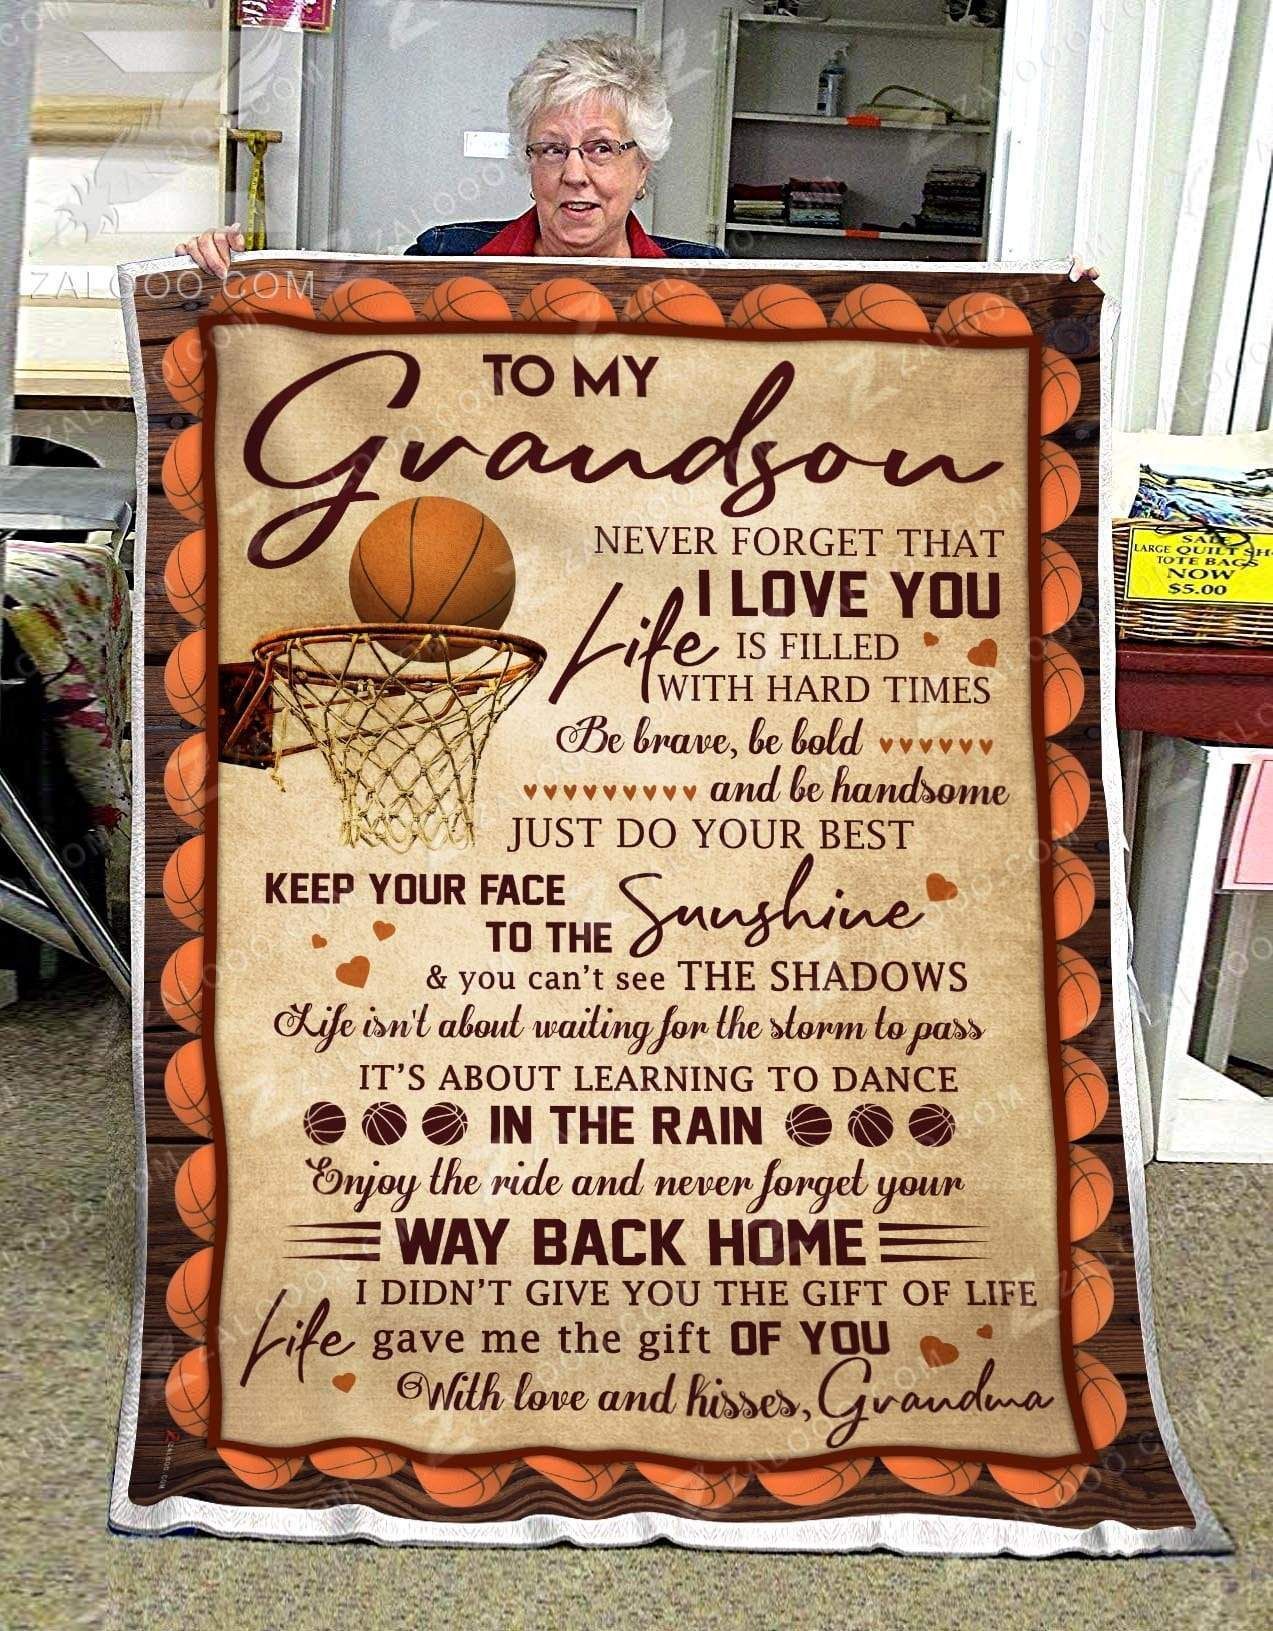 ZALOOO.COM
TO MY
Grandson
NEVER FORGET THAT
I LOVE YOU
Life IS FILLED
WITH HARD TIMES
Be brave, be bold
and be handsome
JUST DO YOUR BEST
KEEP YOUR FACE
TO THE Sunshine
& you can't see THE SHADOWS
Life isn't about waiting for the storm to pass
IT'S ABOUT LEARNING TO DANCE
IN THE RAIN
Enjoy the ride and never forget your
WAY BACK HOME
I DIDN'T GIVE YOU THE GIFT OF LIFE
Life gave me the gift OF YOU
With love and kisses, Grandma
SALE
LARGE QUILT SH
TOTE BAGS
NOW
$5.00